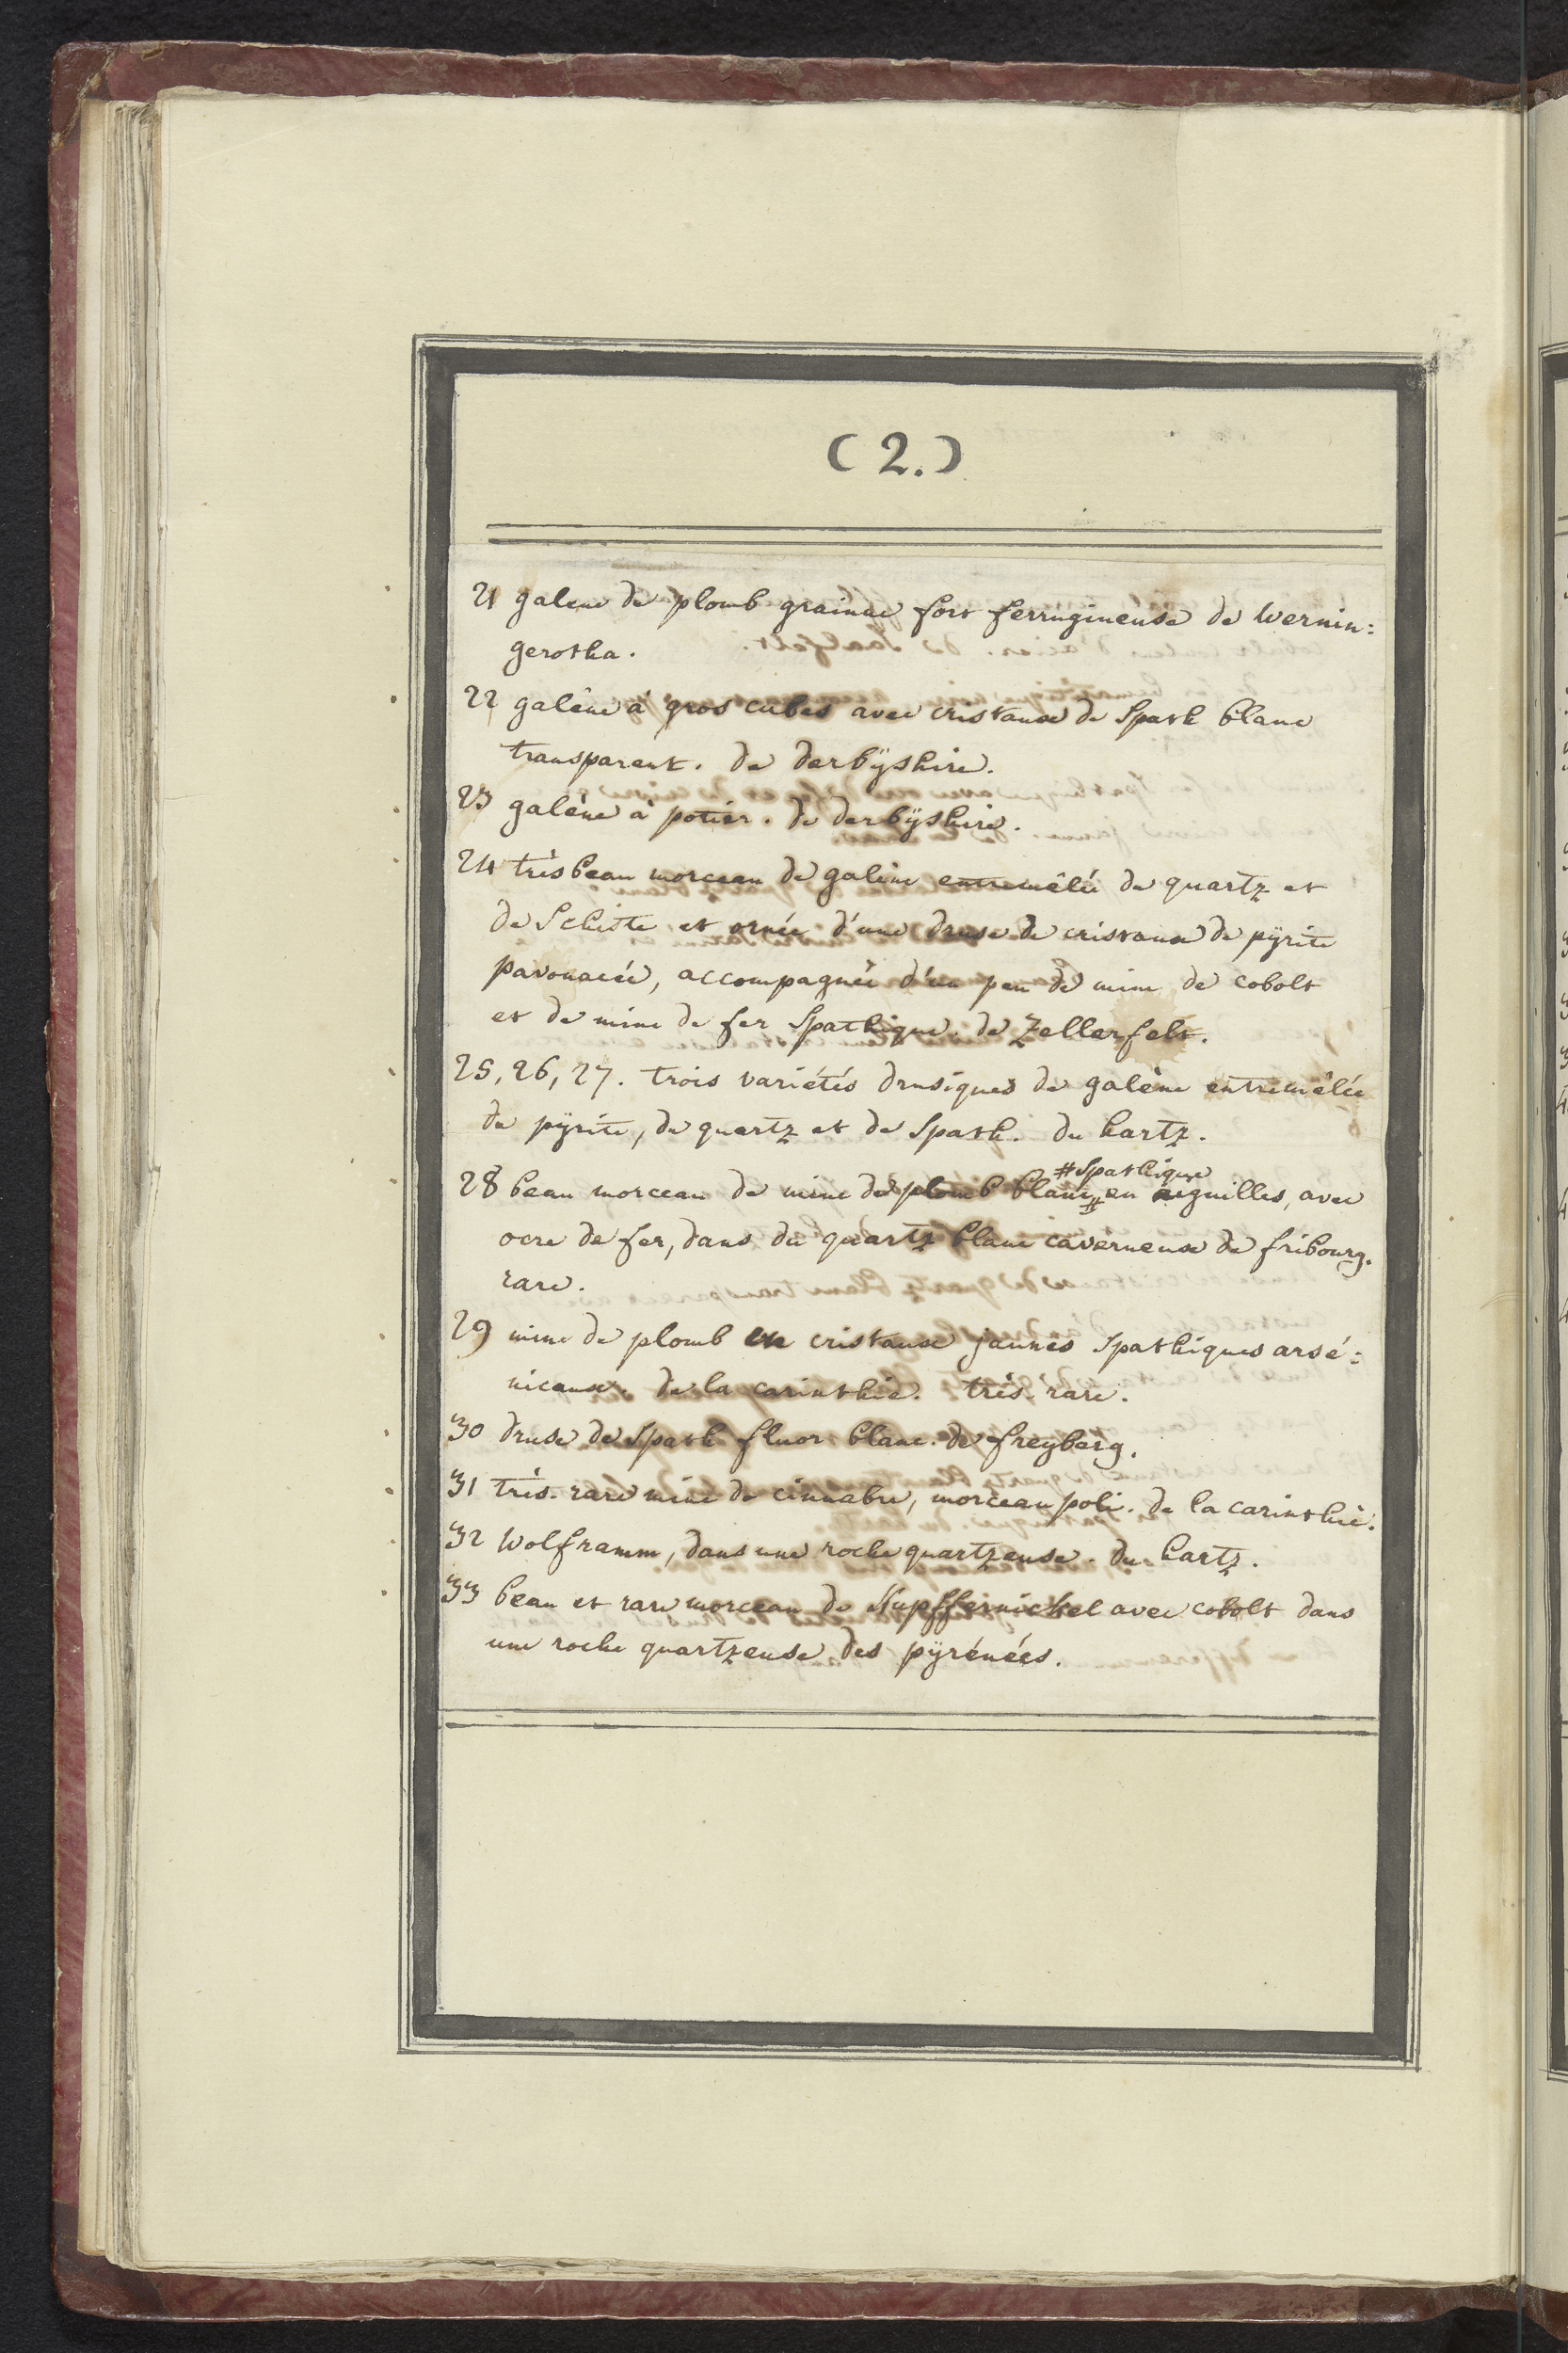 (2.)
21 galene de plomb grainue fort ferrugineuse de Wernin=
gerotha.
22 galêne à gros cubes avec cristaux de Spath blanc
transparent. de derbÿshire.
23 galène à potiér. de derbÿshire.
24 très beau morceau de galène entremêlée de quartz et
de Schiste et ornée d'une druse de cristaux de pÿrite
pavonacée, accompagnée d'un peu de mine de cobolt
et de mine de fer Spathique. de Zellerfelt.
25, 26, 27. trois variétés drusiques de galène entremêlée
de pÿrite, de quartz et de Spath. du hartz.
#Spathique
28 beau morceau de mine de plomb blanc # en aiguilles, avec
ocre de fer, dans du quartz blanc caverneux de fribourg.
rare.
29 mine de plomb en cristaux jaunes Spathiques arsé=
nicaux. de la carinthie. très-rare.
30 druse de Spath fluor blanc. de freyberg.
31 très-rare mine de cinnabre, morceau poli. de la carinthie.
32 Wolframm, dans une roche quartzeuse. du hartz.
33 beau et rare morceau de Kupffernickel avec cobolt dans
une roche quartzeuse des pÿrénées.